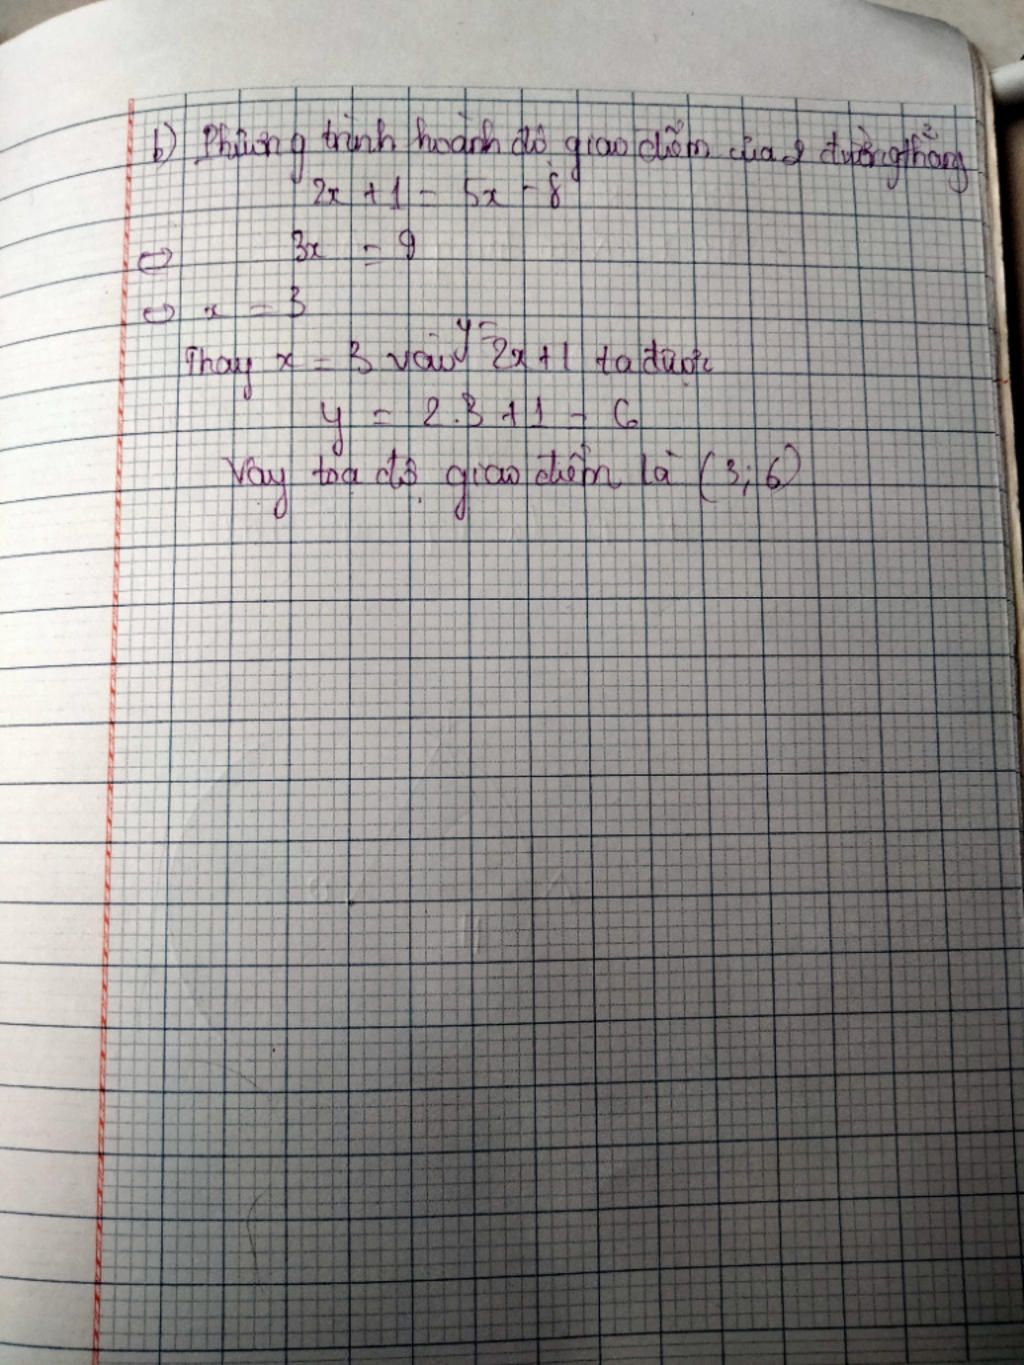 b) Phương trình hoành độ giao điểm của 2 đường thẳng
2x + 1 = 5x - 8
⇔ 3x = 9
⇔ x = 3
Thay x = 3 vào y = 2x + 1 ta được
y = 2.3 + 1 = 6
Vậy toạ độ giao điểm là (3; 6)